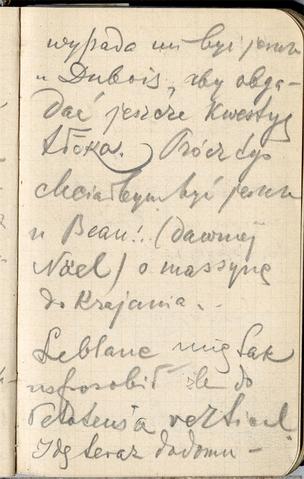 wypada mi być jeszcze
u Dubois, aby obga-
dać jeszcze kwestyę
tłoka. Prócz tego
chciałbym być jeszcze
u Beau! (dawniej
Noël) o massynę
do krajania. -
Leblanc mię tak
usposobił źle do
vertical
Idę teraz do domu -